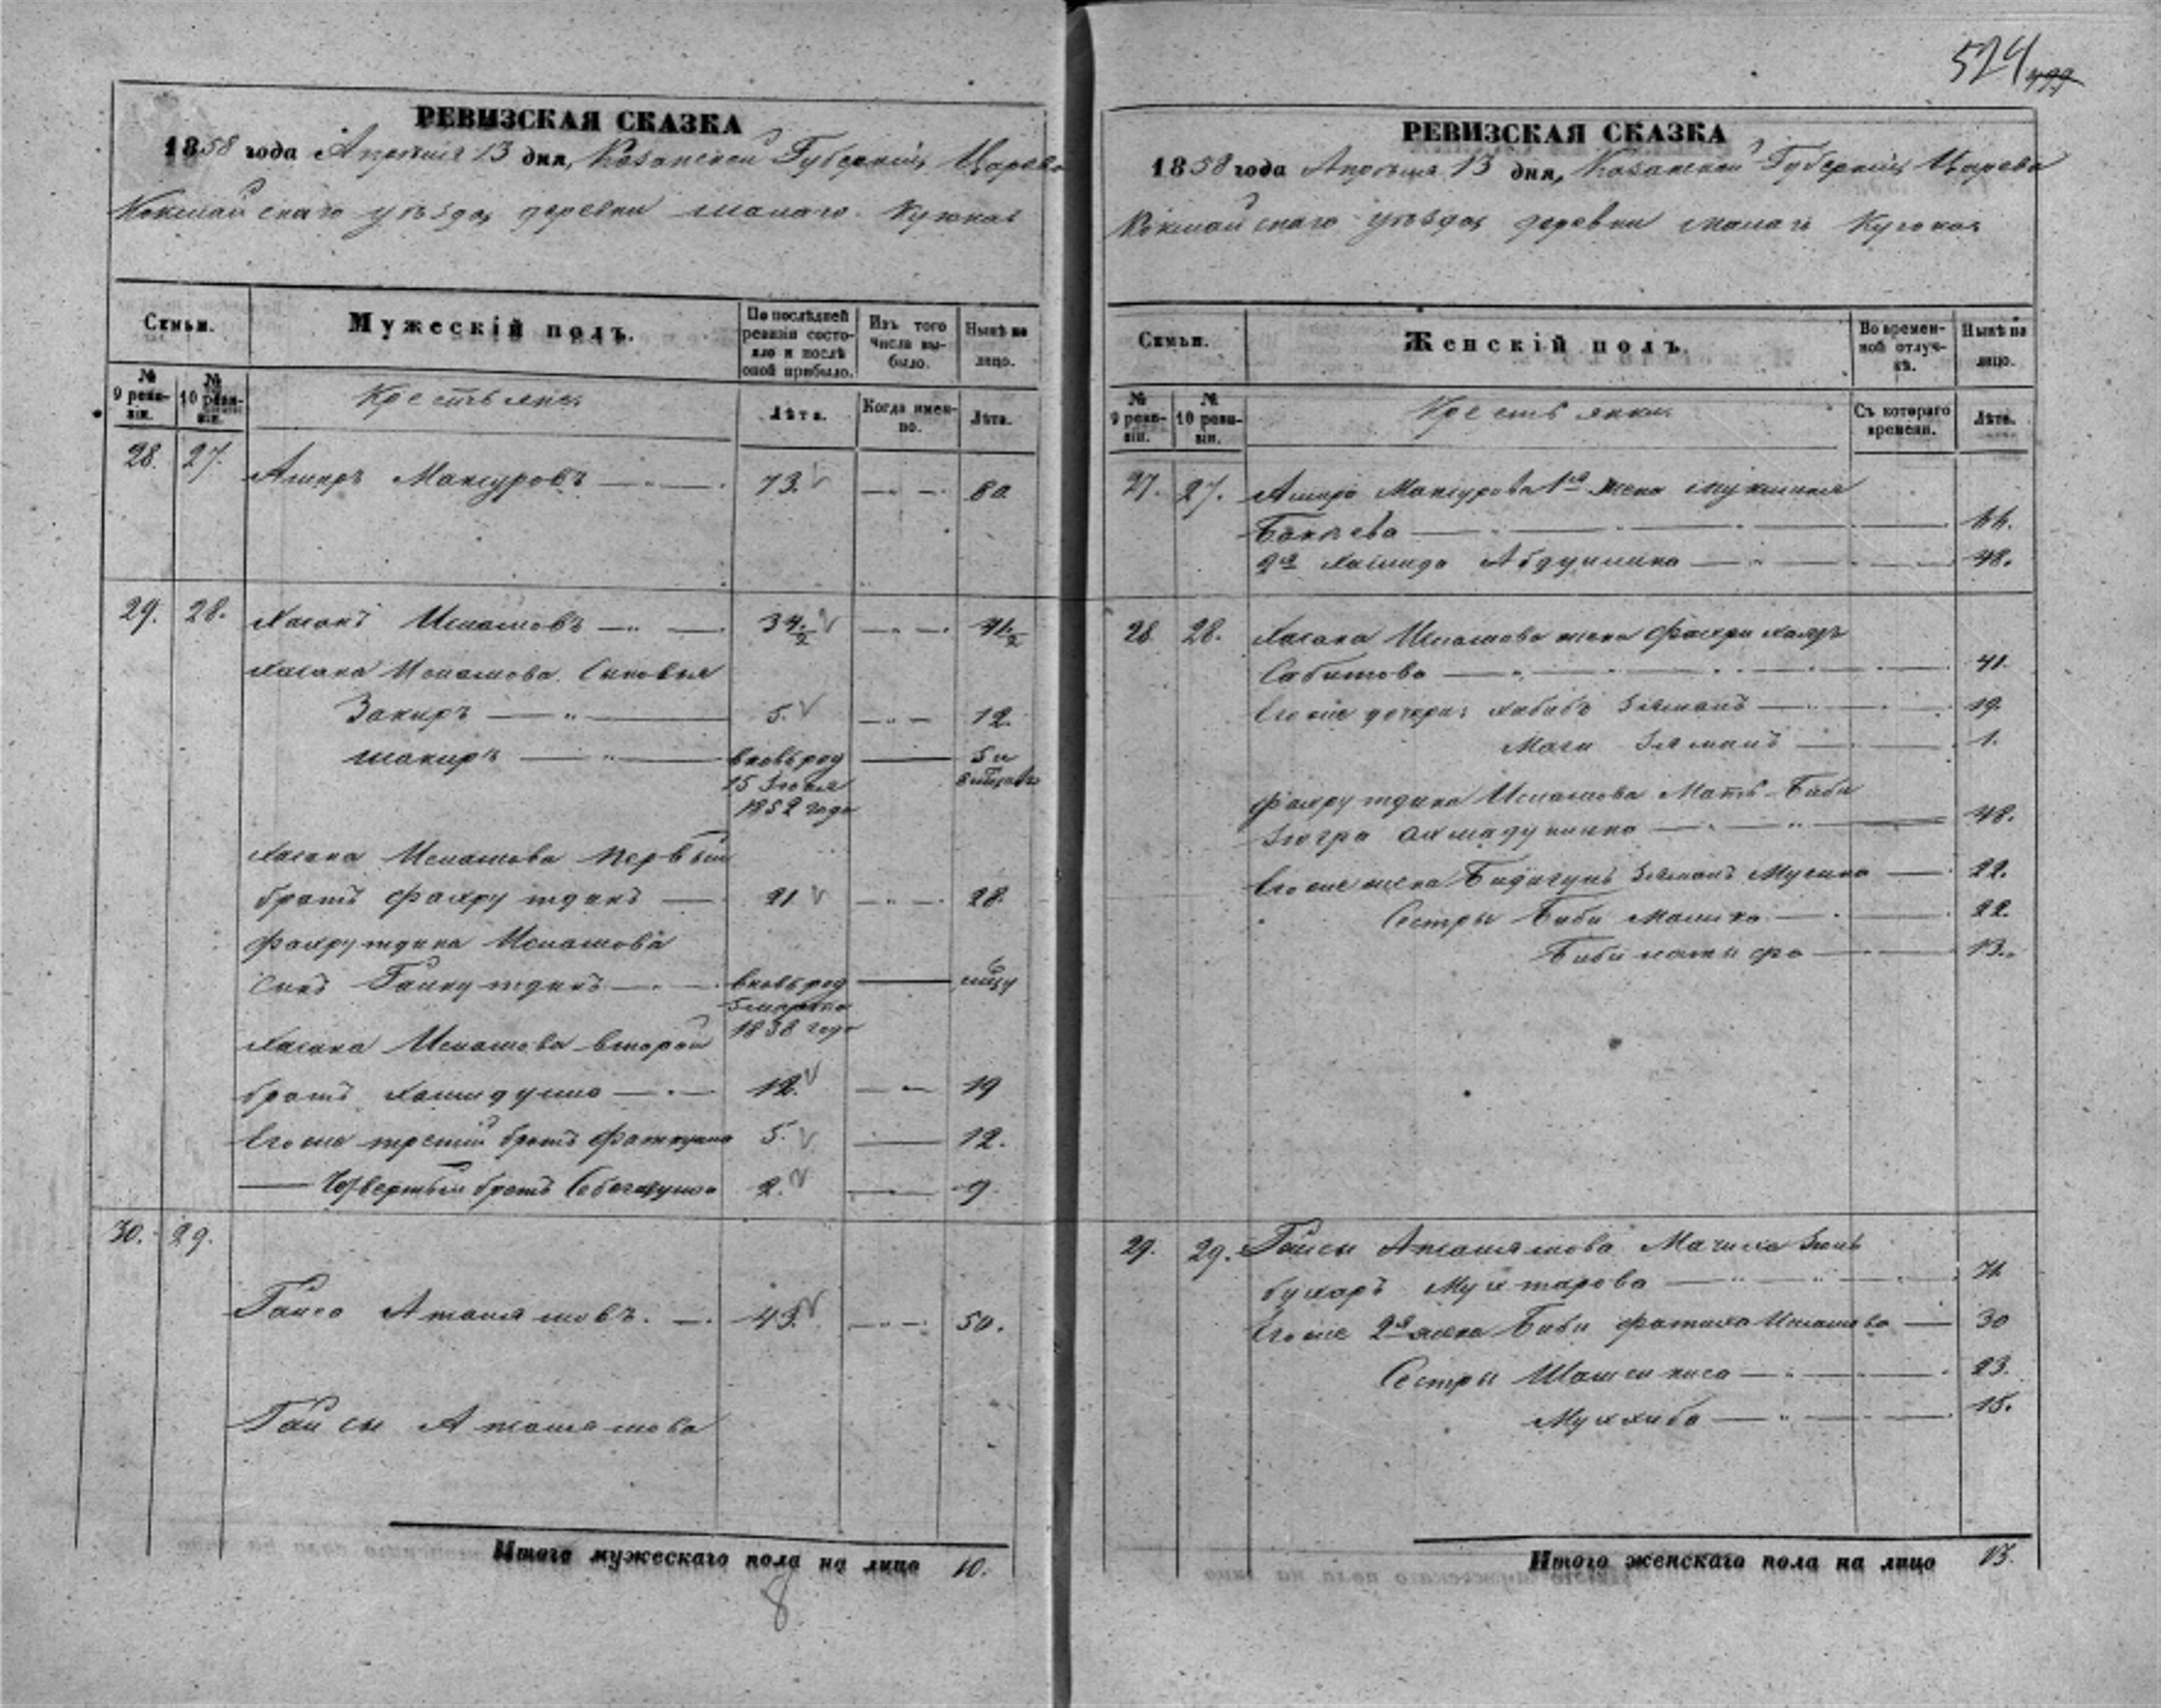 524 499
РЕВИЗСКАЯ СКАЗКА
1858 года Апреля 13 дня, Казанской Губернии, Царево
Кокшайскаго уезда, деревни малаго Кужка
Семьи.
Мужескій полъ.
По послѣдней ревизіи состояло и послѣ оной прибыло.
Изъ того числа выбыло.
Нынѣ на лицо.
№ 9 ревизіи.
№ 10 ревизіи.
Крестьяне
Лѣта.
Когда именно.
Лѣта.
28. 27. Амиръ Мансуровъ 73. 80
29. 28. Хасанъ Исламовъ 34 1/2 41 1/2
Хасана Исламова Сыновья
Закиръ 5. 12.
Шакиръ вновь род 5 и
15
1852 года
Хасана Исламова первый
братъ Фахрутдинъ 21 28.
Фахрутдина Исламова
Сынъ Гайнутдинъ вновь род
1858 года
Хасана Исламова второй
братъ Хамидулла 12. 19
Его же третій братъ Фаткулла 5. 12.
Четвертый братъ 2. 9
30. 29.
Гайса 43. 50.
Гайсы
Итого мужескаго пола на лицо 10.
8
РЕВИЗСКАЯ СКАЗКА
1858 года Апреля 13 дня, Казанской Губернии, Царево
Кокшайскаго уезда, деревни малаго Кужка
Семьи.
Женскій полъ.
Во временной отлучкѣ.
Нынѣ на лицо.
№ 9 ревизіи.
№ 10 ревизіи.
Крестьянки
Съ котораго времени.
Лѣта.
27. 27. Амира Мансурова 1я жена
Бакаева 66.
2я Хамида Абдуллина 48.
28 28. Хасана Исламова жена Фахри
Сабитова 41.
Его же дочери: Хабиба Зяманъ 19.
Маги Зяманъ 1.
Фахрутдина Исламова Мать Биби
Зюгра Ахмадуллина 48.
Его же жена Зяманъ Мусина 22.
Сестры Биби Малика 22.
Биби Латифа 13.
29. 29. Гайсы Мачиха
бухаръ Мухтарова 71
Его же 2я жена Биби Фатиха Исламова 30
Сестры Шамсиниса 23.
Муххиба 15.
Итого женскаго пола на лицо 13.